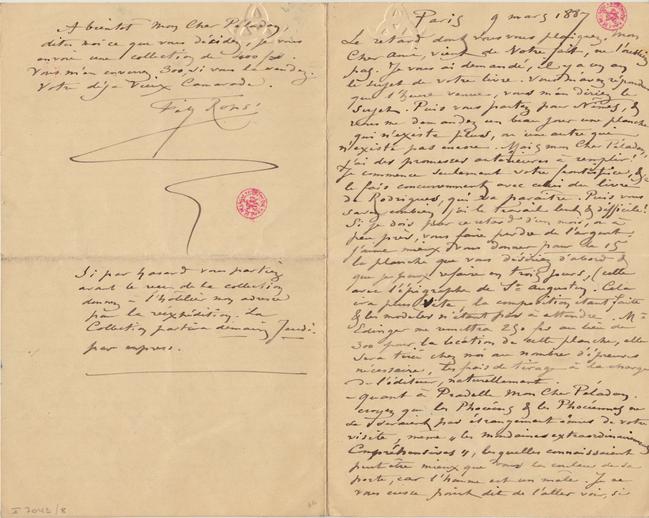 Paris 9 mars 1887
Le retard dont vous vous plaignez, mon
Cher ami vient de Votre fait, ne l'oubliez
pas. Je vous ai demandé, il y a un an
le sujet de votre livre. Vous m'avez répondu
que l'heure venue, vous m'en diriez le
sujet. Puis vous partez pour Nîmes, &
vous me demandez un beau jour une planche
qui n'existe plus, ou une autre que
n'existe pas encore. Mais mon Cher Péladan,
j'ai des promesses antérieures à remplir!
Je commence seulement votre frontispice, &
le fais concurremment avec celui du livre
de Rodrigues, qui va paraître. Puis vous
savez combien j'ai le travail lent & difficile!
Si je dois par ce retard d'un mois, ou à
peu près, vous faire perdre de l'argent
j'aime mieux vous donner pour le 15
la planche que vous désiriez d'abord &
que je puis refaire en trois jours, (celle
avec l'épigraphe de St Augustin. Cela
ira plus vite, la composition étant faite
& les modèles n'étant pas à attendre. Mr
Edinger me remettra 250 frs au lieu de
300 pour la location de cette planche, elle
sera tirée chez moi au nombre d'épreuves
nécessaire, les frais de tirage à la charge
de l'éditeur, naturellement.
- quant à Pradelle mon Cher Péladan.
croyez que les Phocéens & les Phocéennes ne
se seraient pas étrangement émus de votre
visite, même "les mondaines extraordinairement
Compréhensives", lesquelles connaissaient
peut être mieux que vous la couleur de sa
porte, car l'homme est un mâle. Je ne
vous eusse point dit de l'aller voir, si
A bientôt mon Cher Péladan,
dites moi ce que vous décidez, je vous
envoie une collection de
Vous m'en enverrez 300, si vous la vendez.
Votre déjà Vieux Camarade.
Fély Rops
Si par hasard vous partiez
avant le reçu de la collection
donnez à l'hôtelier mon adresse
pour la réexpédition. La
Collection partira demain Jeudi
par express.
7042/8